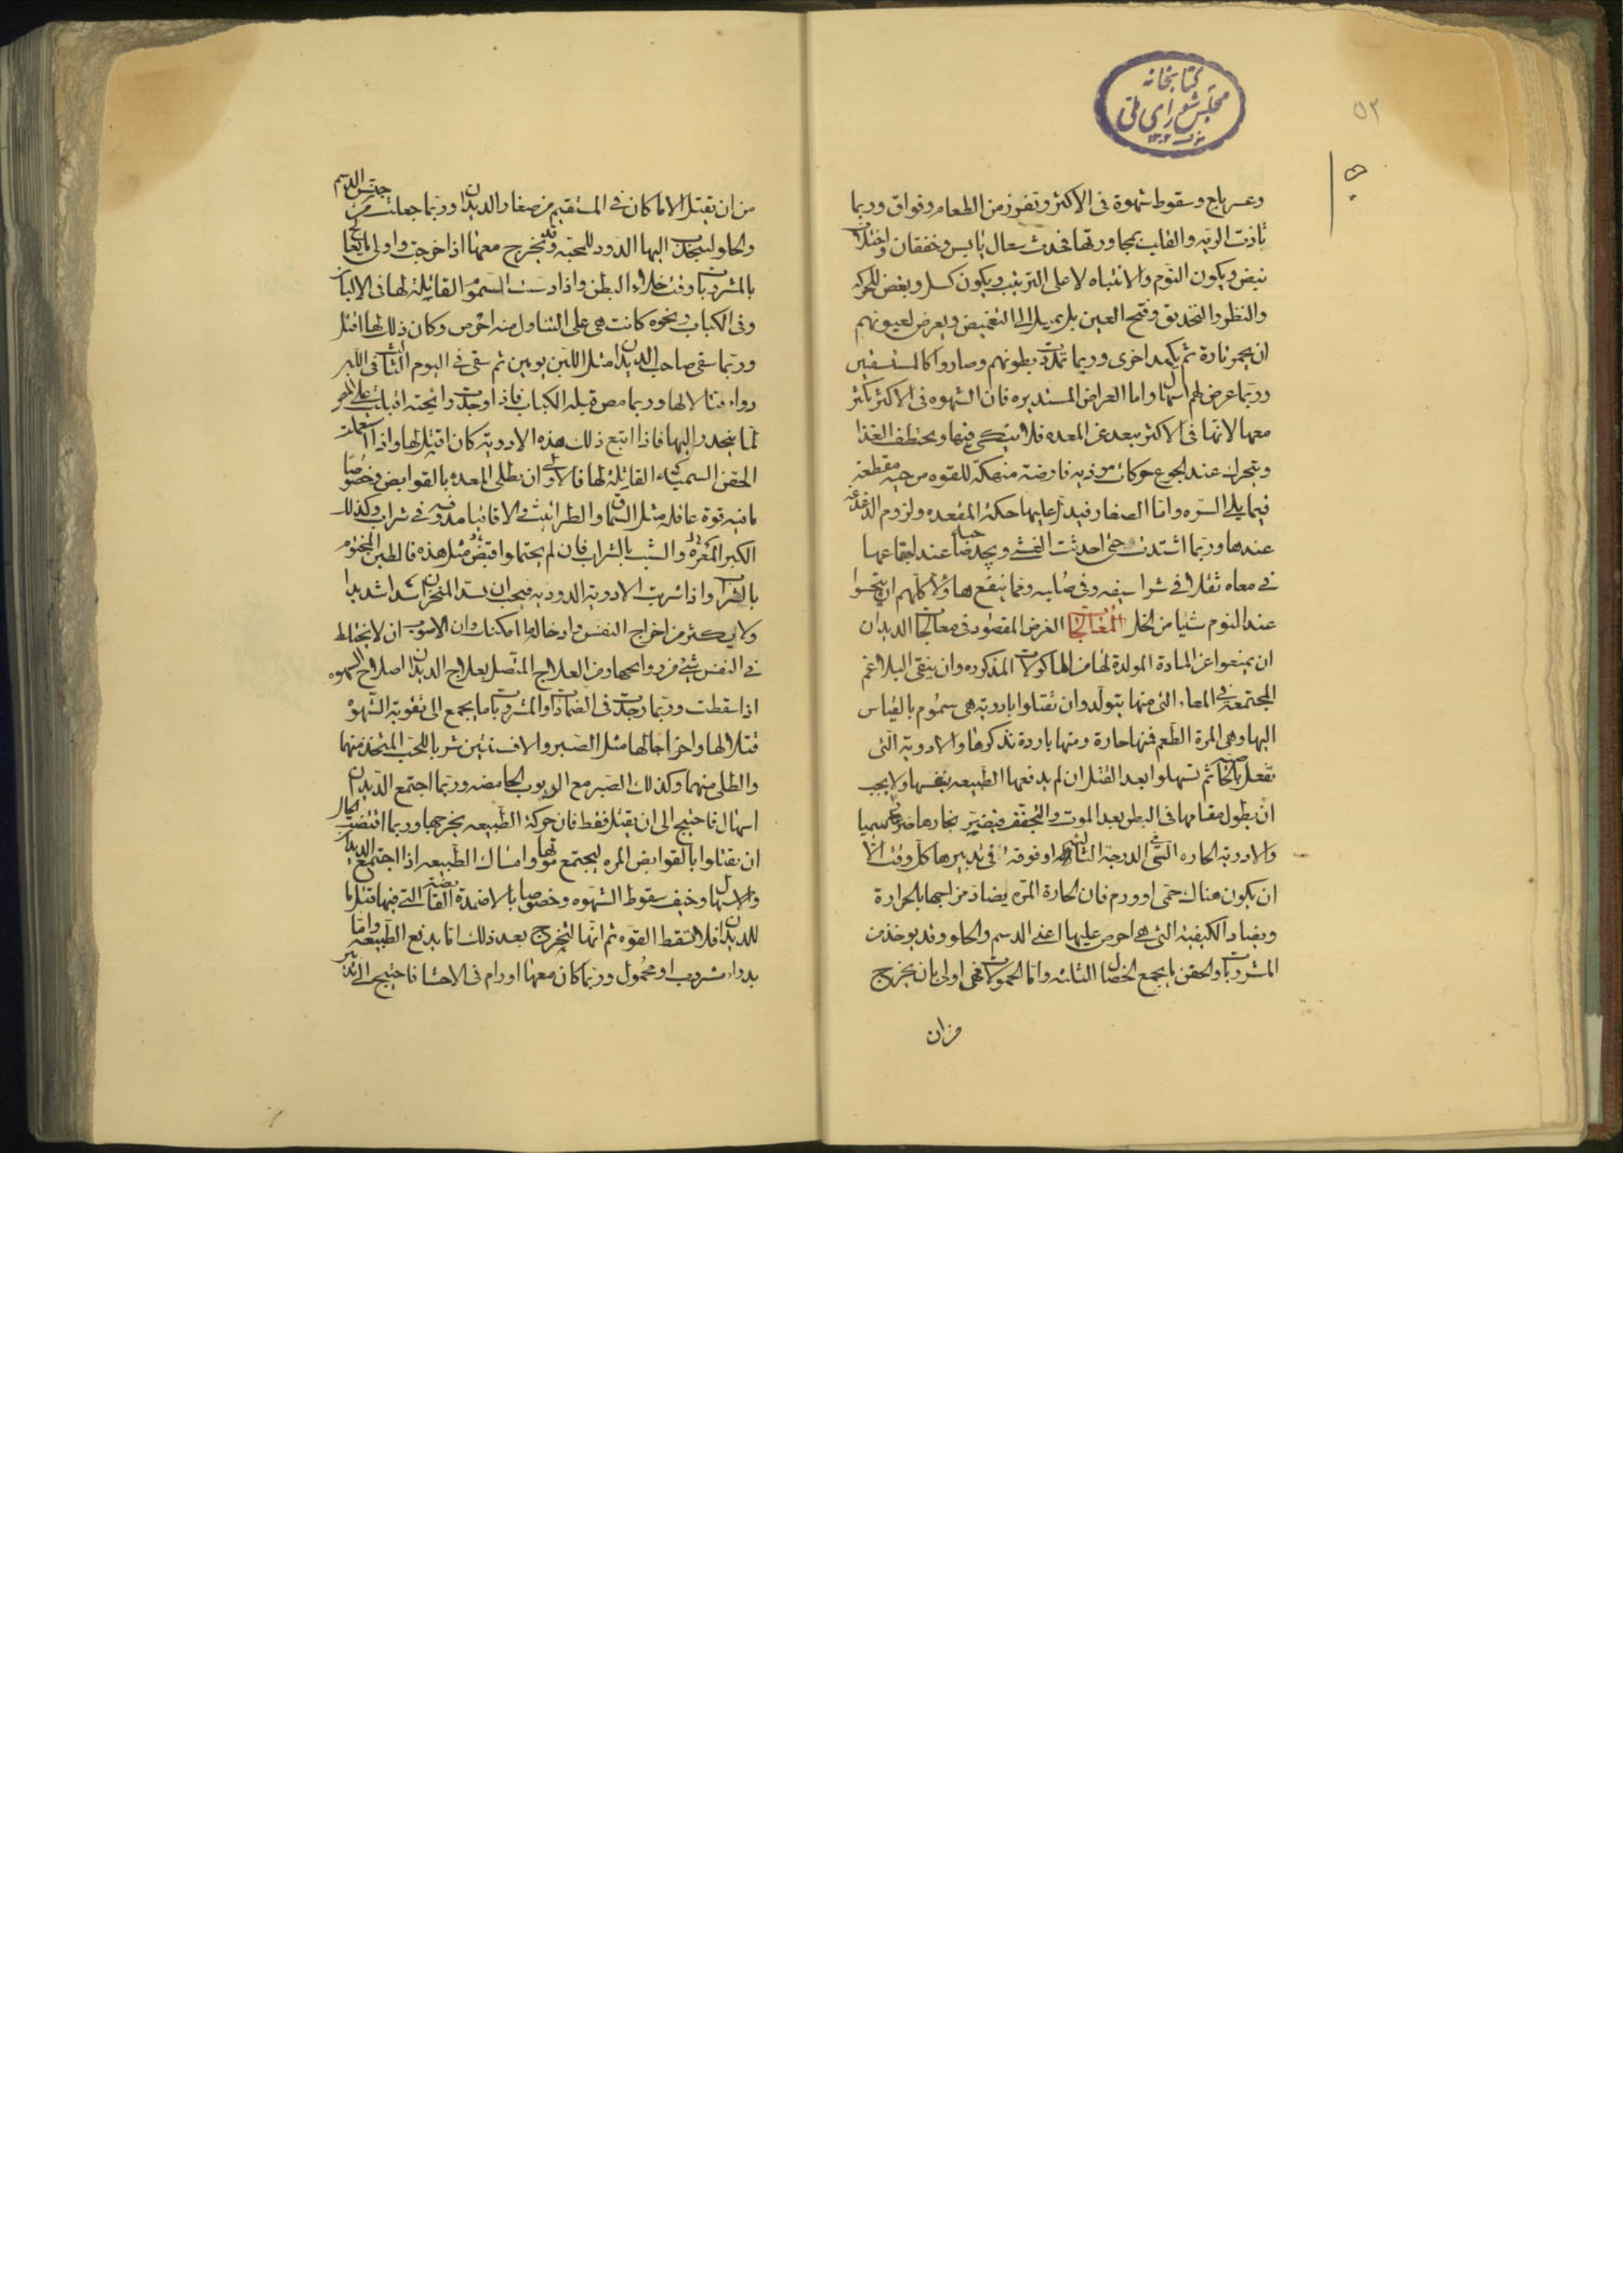 كتابخانه
مجلس شورای ملی
٥٢
وعسر هاج وسقوط شهوة فى الاكثر وتقزز من الطعام وفواق وربما
تاذت الريه والقلب بمجاورتها فحدث سعال يابس وخفقان واختلاف
نبض ويكون النوم والانتباه لا على الترتيب ويكون كسل وبغض للحركه
والنظر والتحديق وفتح العين بل يميل الى التغميض ويعرض لعيونهم
ان يحمر تارة ثم يكمد اخرى وربما تمددت بطونهم وصاروا كالمستسقين
وربما عرض لهم اسهال واما العراض المستديره فان الشهوه فى الاكثر تكثر
معها لانها فى الاكثر تبعد عن المعده فلا تنكى فيها وتختطف الغذا
وتتحرك عند الجوع حركات موذيه قارضة منهكة للقوه مرخيه مقطعة
فيما يلى السره واما الصغار فيدل عليها حكة المقعده ولزوم الدغدغه
عندها وربما اشتدت حتى احدثت الغشى ويجد صاحبها عند اجتماعها
فى معاه ثقلا فى شراسيفه وفى صلبه ومما ينفع هاولا كلهم ان يتحسوا
عند النوم شيا من الخل المعالجات الغرض المقصود فى معالجات الديدان
ان يمنعوا عن المادة المولدة لها من الماكولات المذكوره وان ينقى البلاغم
المجتمعة فى المعاء التى منها يتولد وان تقتلوا بادوية هى سموم بالقياس
اليها وهى المرة الطعم فمنها حارة ومنها باردة نذكرها والادوية التى
تفعل بالخاصية ثم تسهلوا بعد القتل ان لم يدفعها الطبيعه بنفسها ولا يجب
ان يطول مقامها فى البطن بعد الموت والتجفف فيضر بخارها ضررا سميا
والادوية الحاره التى فى الدرجة الثالثه او فوقه فى تدبيرها كل وقت الا
ان يكون هناك حمى او ورم فان الحارة المرة يضاد مزاجها بالحرارة
ويضاد الكيفية التى هى احرص عليها اعنى الدسم والحلو وقد يوخذ من
المشروبات والحقن ما يجمع الخصال الثلثه واما الحمولات فهى اولى بان يخرج
من ان
من ان تقتل الا ما كان فى المستقيم من صغار الديدان وربما جعلت من جنس الدسم
والحلو لينجذب اليها الدود للمحبه وقد يخرج معها اذا خرجت واولى ما يعالج
بالمشروبات وقت خلاء البطن واذا دست السموم القاتلة لها فى الالبان
وفى الكباب ونحوه كانت هى على التناول منه احرص وكان ذلك لها اقتل
وربما سقى صاحب الديدان مثل اللبن يومين ثم سقى فى اليوم الثالث فى اللبن
دواء قتالا لها وربما مص قبله الكباب فاذا وجدت رائحته اقبلت على المص
لما ينحدر اليها فاذا اتبع ذلك هذه الادوية كان اقتل لها واذا استعملت
الحقن السميه القاتلة لها فالاولى ان يطلى المعده بالقوابض وخصوصا
ما فيه قوة عاقله مثل السماق والطراثيث والاقاقيا مدوفه فى شراب وكذلك
الكبر المغره والشب بالشراب فان لم يحتملوا قبض مثل هذه فالطين المختوم
بالشراب واذا شربت الادوية الدوديه فيجب ان يسد المنخران سدا شديدا
ولا يكثر من اخراج النفس وادخاله ما امكنك وان الاصوب ان لا يختلط
فى النفس شى من روايحها ومن العلاج المتصل بعلاج الديدان اصلاح الشهوه
اذا سقطت وربما وجدت فى الضمادات والمشروبات ما يجمع الى تقوية الشهوة
قتلا لها واخراجا لها مثل الصبر والافسنتين شربا للحب المتخذ منهما
والطلى منهما وكذلك الصبر مع الربوب الحامضه وربما اجتمع الديدان
اسهال فاحتيج الى ان يقتل فقط فان حركة الطبيعه يخرجها وربما اقتضت الحال
ان يقتلوا بالقوابض المره ليجتمع موتها وامساك الطبيعه اذا اجتمع الديدان
والاسهال وخيف سقوط الشهوه وخصوصا بالاضمدة القابضة التى فيها قتل ما
للديدان فلا تسقط القوه ثم انها لتخرج بعد ذلك اما بدفع الطبيعه واما
بدواء مشروب او محمول وربما كان معها اورام فى الاحشا فاحتيج الى تدبير